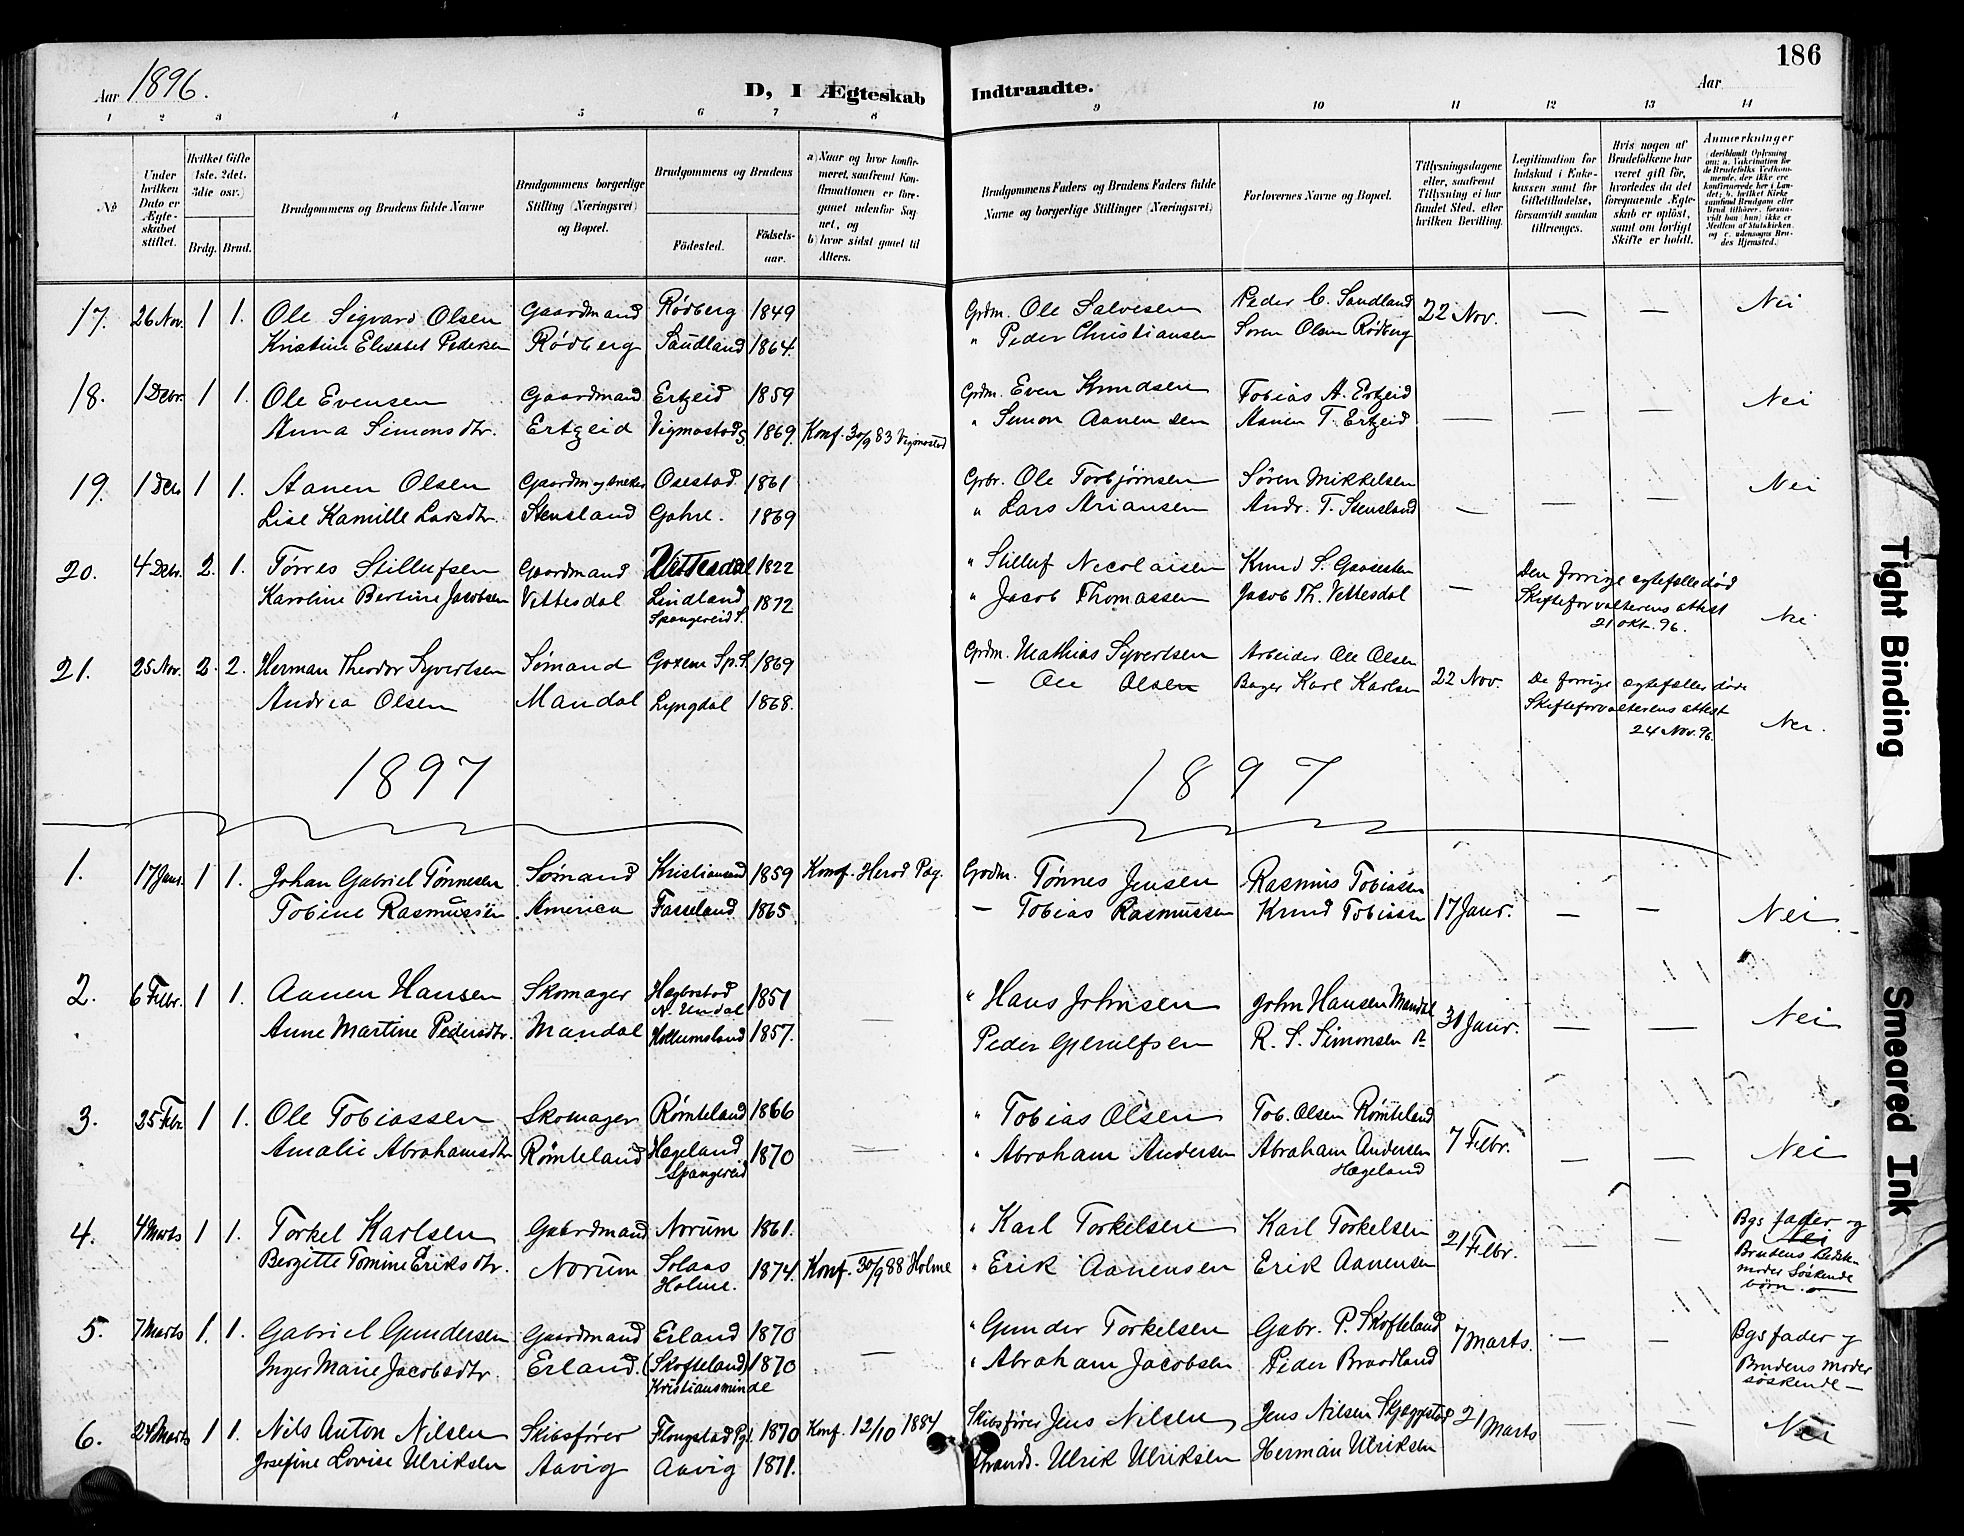 186
Aar 1896.
D, I Ægteskab Indtraadte.
Aar
1 2 3 4 5 6 7 8 9 10 11 12 13 14
No
Under hvilken Dato er Ægteskabet stiftet.
Hvilket Gifte 1ste. 2det. 3die osv.)
Brdg. Brud.
Brudgommens og Brudens fulde Navne
Brudgommens borgerlige Stilling (Næringsvei) og Bopæl.
Brudgommens og Brudens
Födested.
Födsels-aar.
a) Naar og hvor konfirmeret, saafremt Konfirmationen er foregaaet udenfor Sognet, og
b) hvor sidst gaaet til Alters.
Brudgommens Faders og Brudens Faders fulde Navne og borgerlige Stillinger (Næringsvei)
Forlovernes Navne og Bopæl.
Tillysningsdagene eller, saafremt Tillysning ei har fundet Sted, efter hvilken Bevilling.
Legitimation for Indskud i Enkekassen samt for Giftetilladelse, forsaavidt saadan tiltrænges.
Hvis nogen af Brudefolkene har været gift för, hvorledes da det foregaaende Ægteskab er oplöst, samt om lovligt Skifte er holdt.
Anmerkninger
17. 26 Nov. 1 1. Ole Sigvard Olsen Gaardmand Rödberg 1849 Grdm. Ole Salvesen Peder C. Sandland 22 Nov. — — Nei
Kristine Elisabet Pedersen Rødberg Sandland 1864. " Peder Christiansen Søren Olsen Rødberg
18. 1 Debr. 1 1. Ole Evensen Gaardmand Ertzeid 1859 Grdm. Even Knudsen Tobias A. Ertzeid — — — Nei
Anna Simonsdtr. Ertzeid Vigmostad S. 1869. Konf. 30/9 83 Vigmostad " Simon Aanensen Aanen T. Ertzeid
19. 1 Deb. 1 1. Aanen Olsen Gaardm og snekker Osestad 1861 Grbr. Ole Torbjørnsen Søren Mikkelsen — — — Nei
Lise Kamille Larsdtr. Stensland Gahre. 1869 " Lars Ariansen Andr. T. Stensland
20. 4 Debr. 2. 1. Tørres Stillufsen Gaardmand Vittesdal 1822 " Stilluf Nicolaisen Knud S. Gaasesten — Den forrige egtefælle død
Karoline Bertine Jacobsen Vittesdal Lindland 1872 " Jacob Thomassen Jacob Th. Vittesdal Skifteforvalterens attest
Spangereid S. 21 Okt. 96. Nei
21. 25 Nov. 2. 2. Herman Theodor Syvertsen Sømand Goxem Sp. S. 1869 Grdm. Mathias Syvertsen Arbeider Ole Olsen 22 Nov. De forrige egtefæller døde
Andrea Olsen Mandal Lyngdal 1868. — Ole Olsen Bager Karl Karlsen Skifteforvalterens attest
24 Nov. 96. Nei.
1897 1897
1. 17 Janr. 1 1. Johan Gabriel Tønnesen Sømand Kristiansand 1859 Konf. Herod Pdg. Grdm. Tønnes Jensen Rasmus Tobiassen
Tobine Rasmussen America Fasseland 1865 — Tobias Rasmussen Knud Tobiassen 17 Janr. — — Nei.
2. 6 Febr. 1 1. Aanen Hansen Skomager Hægbostad 1851 " Hans Johnsen John Hansen Mandal 31 Janr. — — Nei
N. Undal
Anne Martine Pedersdtr. Mandal Hollumsland 1857. — Peder Gjerulfsen R. S. Simonsen
3. 25 Febr. 1 1. Ole Tobiassen Skomager Rømteland 1866 " Tobias Olsen Tob. Olsen Rømteland
Amalie Abrahamsdtr Rømteland Hægeland 1870 — " Abraham Andersen Abraham Andersen 7 Febr. — — Nei
Spangereid Hægeland
4. 4 Marts 1 1. Torkel Karlsen Gaardmand Norum 1861. " Karl Torkelsen Karl Torkelsen 21 Febr. — — Bgs fader og
Nei
Bergitte Tomine Eriksdtr. Norum Solaas 1874. Konf. 30/9 88 Holme " Erik Aanensen Erik Aanensen Brudens Bedste-
Holme. moder Söskende
børn
5. 7 Marts 1. 1. Gabriel Gundersen Gaardmand Erland 1870 " Gunder Torkelsen Gabr. P. Skofteland 7 Marts. — — Bgs fader og
Inger Marie Jacobsdtr. Erland. (Skofteland) 1870 — " Abraham Jacobsen Peder Braadland Brudens moder
Kristiansminde søskende —
6. 24 Marts 1 1. Nils Anton Nilsen Skibsfører Flongstad Pgl. 1870 Konf. 12/10 1884 Skibsfører Jens Nilsen Jens Nilsen Skjeggestad 21 Marts — — Nei
Josefine Lovise Ulriksen Aavig Aavig 1871. Strands. Ulrik Ulriksen Herman Ulriksen
Tight Binding
Smeared Ink